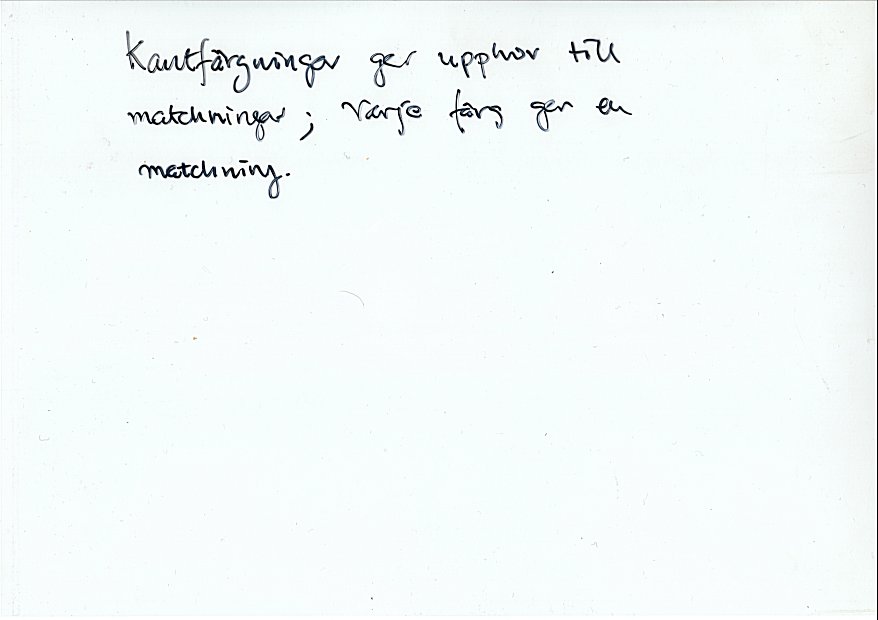 Kantfärgningar ger upphov till
matchningar; Varje färg ger en
matchning.